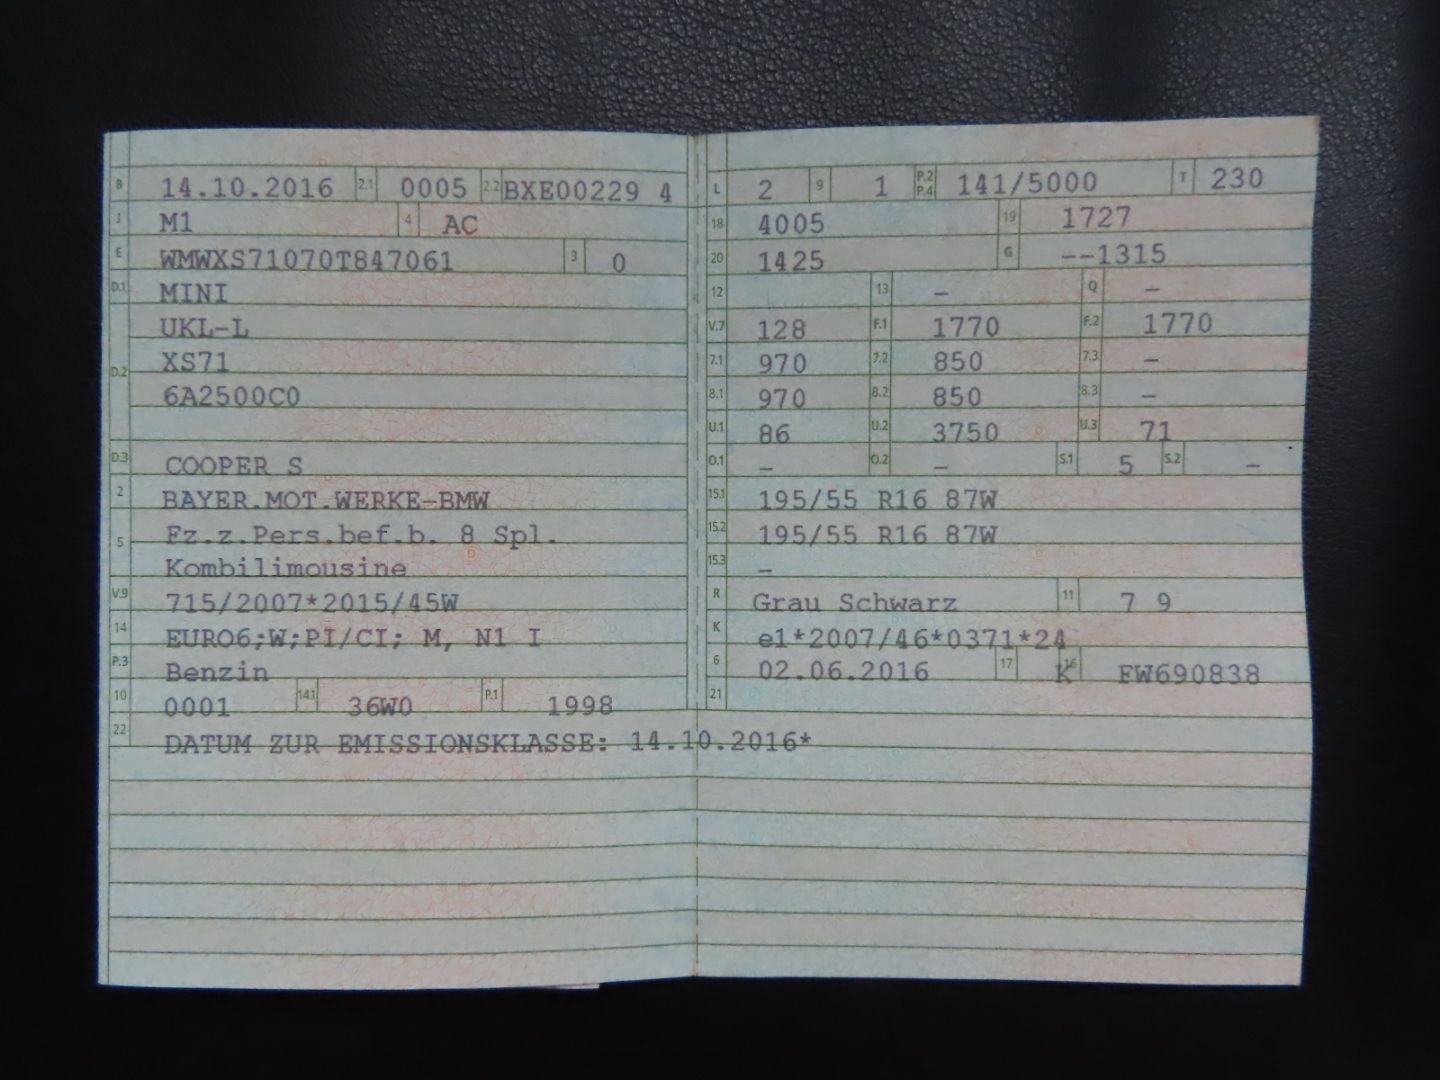 B 14.10.2016 2.1 0005 2.2 BXE00229 4
J M1 4 AC
E WMWXS71070T847061 3 0
D.1 MINI
UKL-L
D.2 XS71
6A2500C0
D.3 COOPER S
2 BAYER.MOT.WERKE-BMW
5 Fz.z.Pers.bef.b. 8 Spl.
Kombilimousine
V.9 715/2007*2015/45W
14 EURO6;W;PI/CI; M, N1 I
P.3 Benzin
10 0001 14.1 36W0 P.1 1998
22 DATUM ZUR EMISSIONSKLASSE: 14.10.2016*
L 2 9 1 P.2 P.4 141/5000 T 230
18 4005 19 1727
20 1425 G --1315
12 13 - Q -
V.7 128 F.1 1770 F.2 1770
7.1 970 7.2 850 7.3 -
8.1 970 8.2 850 8.3 -
U.1 86 U.2 3750 U.3 71
O.1 - O.2 - S.1 5 S.2 -
15.1 195/55 R16 87W
15.2 195/55 R16 87W
15.3 -
R Grau Schwarz 11 7 9
K e1*2007/46*0371*24
6 02.06.2016 17 K 16 FW690838
21